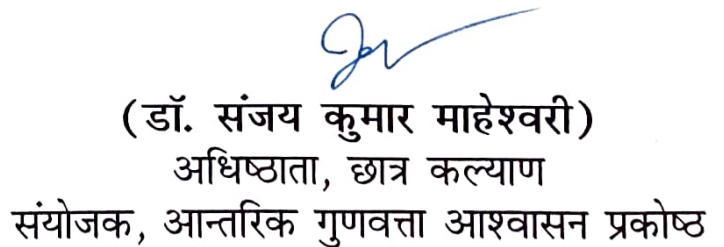 (डॉ. संजय कुमार माहेश्वरी)
अधिष्ठाता, छात्र कल्याण
संयोजक, आन्तरिक गुणवत्ता आश्वासन प्रकोष्ठ